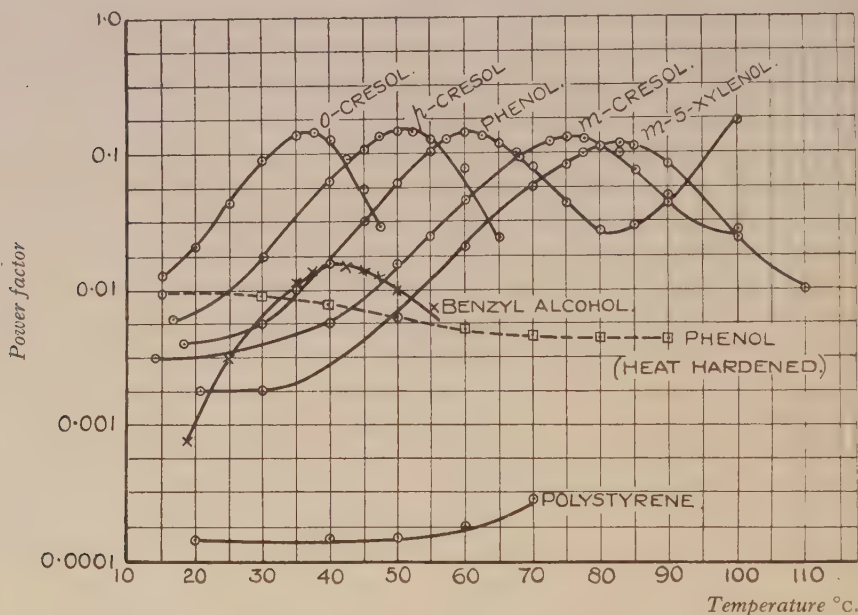 1·0
0·1
0·01
0·001
0·0001
Power factor
o-CRESOL.
p-CRESOL
PHENOL.
m-CRESOL.
m-5-XYLENOL.
BENZYL ALCOHOL.
PHENOL
(HEAT HARDENED.)
POLYSTYRENE.
10 20 30 40 50 60 70 80 90 100 110
Temperature °C.